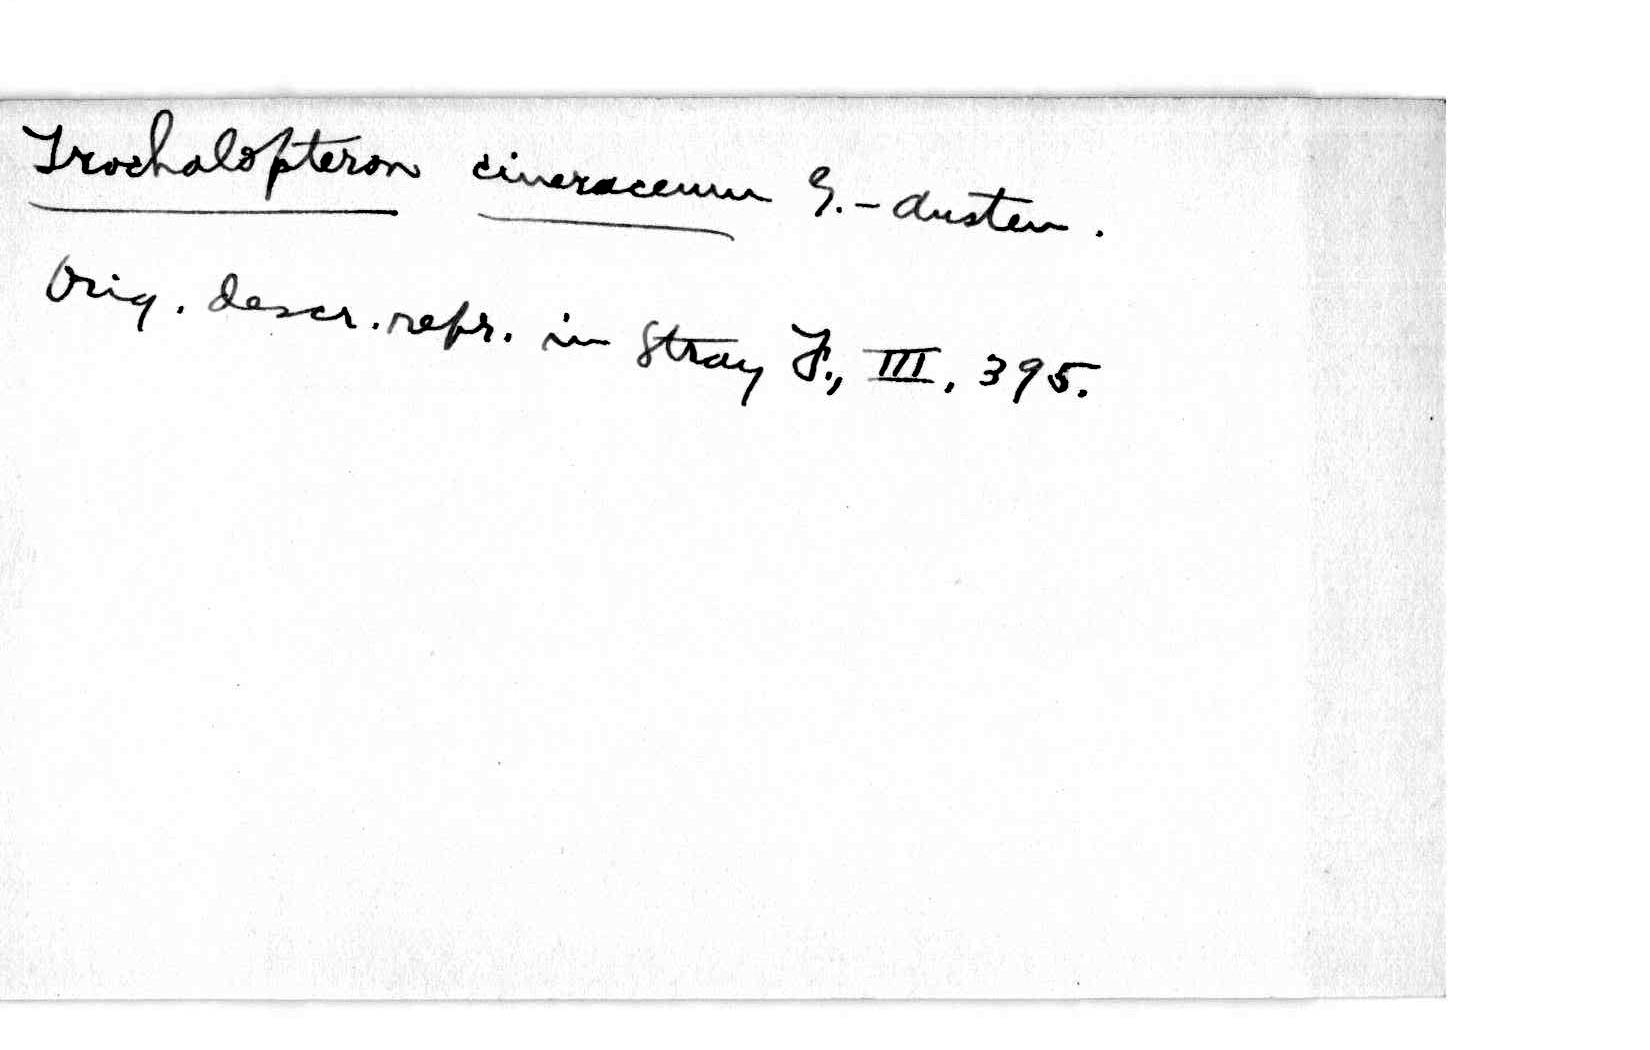 Trochalopteron cineraceum G.-Austen.
Orig. descr. repr. in Stray F., III, 395.